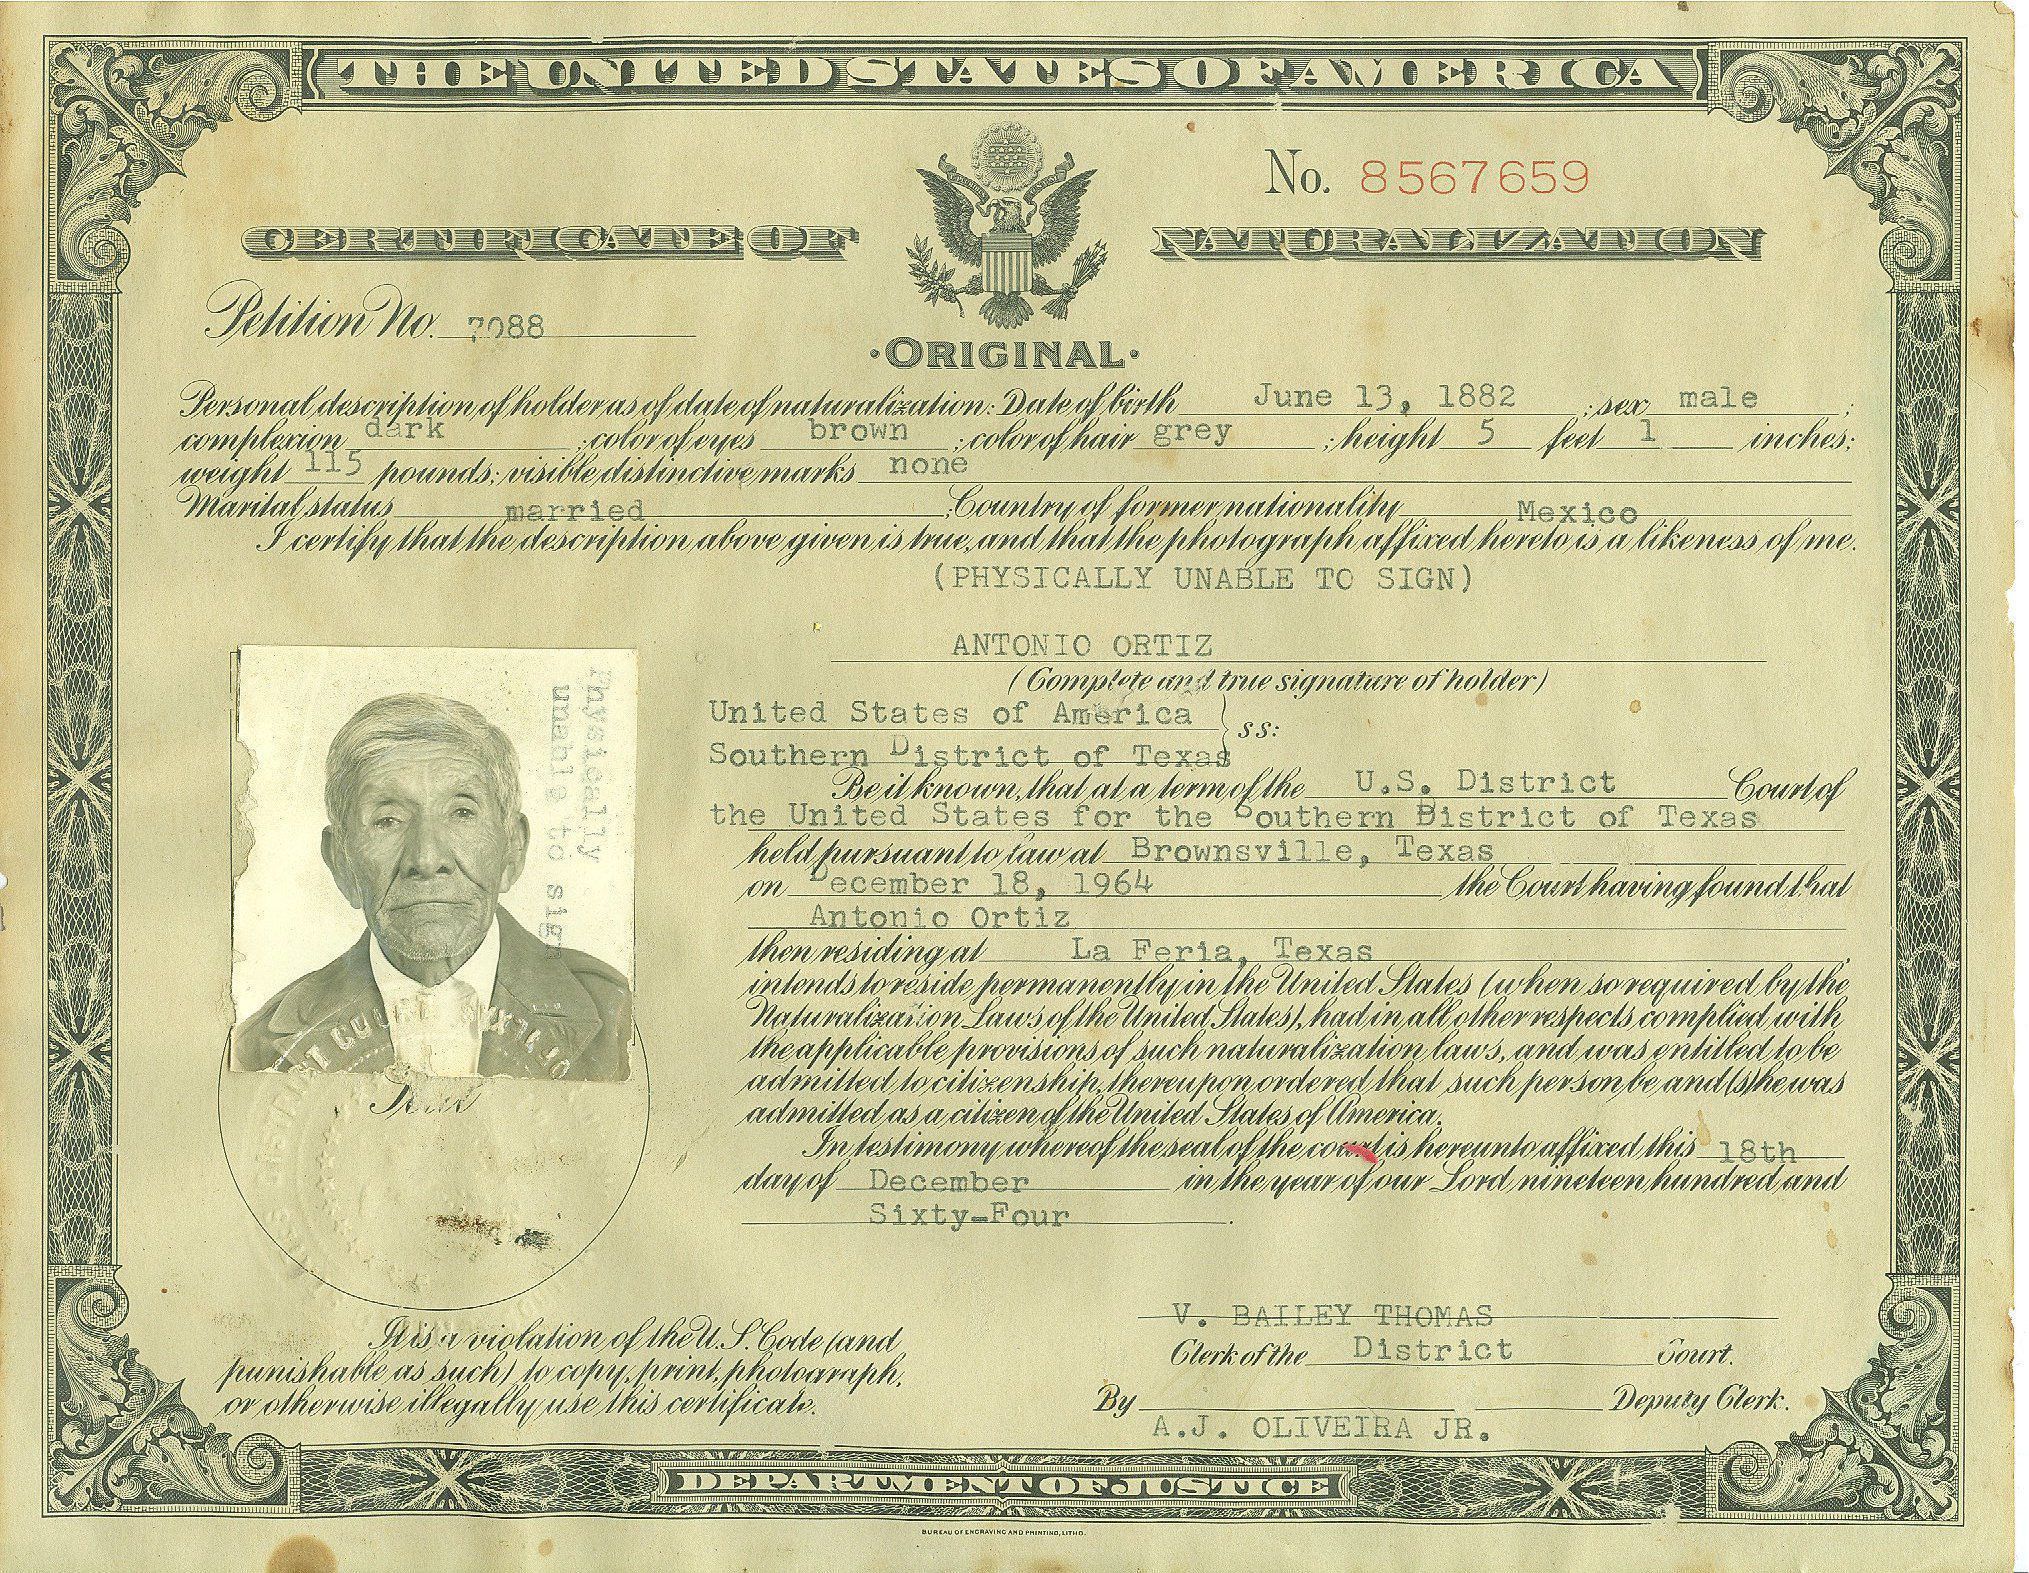 THE UNITED STATES OF AMERICA
No. 8567659
CERTIFICATE OF NATURALIZATION
Petition No. 7088
·ORIGINAL·
Personal description of holder as of date of naturalization: Date of birth June 13, 1882 ; sex male ;
complexion dark ; color of eyes brown ; color of hair grey ; height 5 feet 1 inches;
weight 115 pounds; visible distinctive marks none
Marital status married ; Country of former nationality Mexico
I certify that the description above given is true, and that the photograph affixed hereto is a likeness of me.
(PHYSICALLY UNABLE TO SIGN)
ANTONIO ORTIZ
(Complete and true signature of holder)
Physically
unable to sign
United States of America
Southern District of Texas } ss:
Be it known, that at a term of the U.S. District Court of
the United States for the Southern District of Texas
held pursuant to law at Brownsville, Texas
on December 18, 1964 the Court having found that
Antonio Ortiz
then residing at La Feria, Texas,
intends to reside permanently in the United States (when so required by the
Naturalization Laws of the United States), had in all other respects complied with
the applicable provisions of such naturalization laws, and was entitled to be
admitted to citizenship, thereupon ordered that such person be and (s)he was
admitted as a citizen of the United States of America.
Seal
In testimony whereof the seal of the court is hereunto affixed this 18th
day of December in the year of our Lord nineteen hundred and
Sixty-Four.
It is a violation of the U.S. Code (and
punishable as such) to copy, print, photograph,
or otherwise illegally use this certificate.
V. BAILEY THOMAS
Clerk of the District Court.
By Deputy Clerk.
A.J. OLIVEIRA JR.
DEPARTMENT OF JUSTICE
BUREAU OF ENGRAVING AND PRINTING, LITHO.